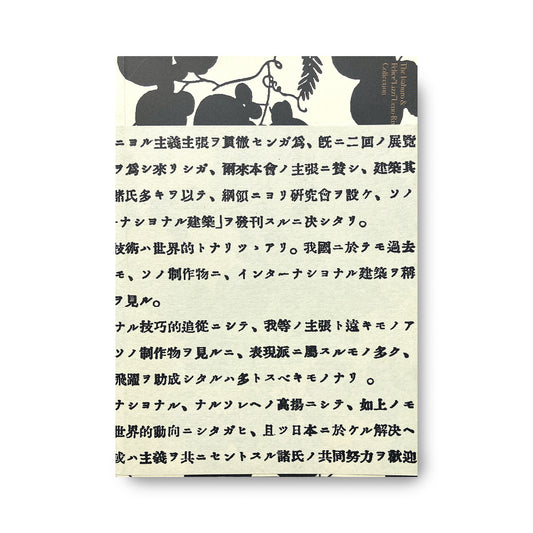 The Isaburo &
Felice "Lizzi" Ueno-Rix
Collection
ニヨル主義主張ヲ貫徹センガ爲、旣ニ二囘ノ展覽
ヲ爲シ來リシガ、爾來本會ノ主張ニ贊シ、建築其
諸氏多キヲ以テ、綱領ニヨリ硏究會ヲ設ケ、ソノ
ーナショナル建築」ヲ發刊スルニ决シタリ。
技術ハ世界的トナリツヽアリ。我國ニ於テモ過去
モ、ソノ制作物ニ、インターナショナル建築ヲ稱
ヲ見ル。
ナル技巧的追從ニシテ、我等ノ主張ト遠キモノア
ソノ制作物ヲ見ルニ、表現派ニ屬スルモノ多ク、
飛躍ヲ助成シタルハ多トスベキモノナリ 。
ナショナル、ナルソレヘノ高揚ニシテ、如上ノモ
世界的動向ニシタガヒ、且ツ日本ニ於ケル解决ヘ
或ハ主義ヲ共ニセントスル諸氏ノ共同努力ヲ歡迎